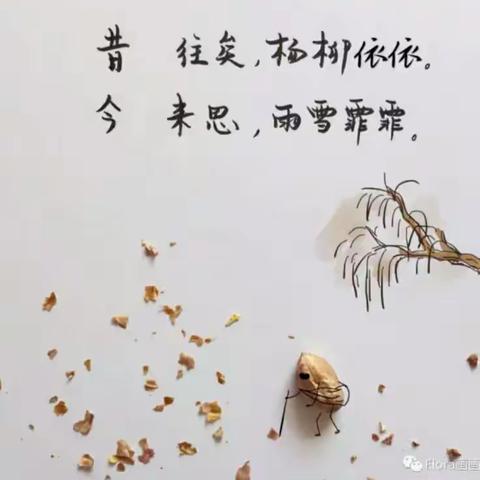 昔 往矣，杨柳依依。
今 来思，雨雪霏霏。
Flora画画